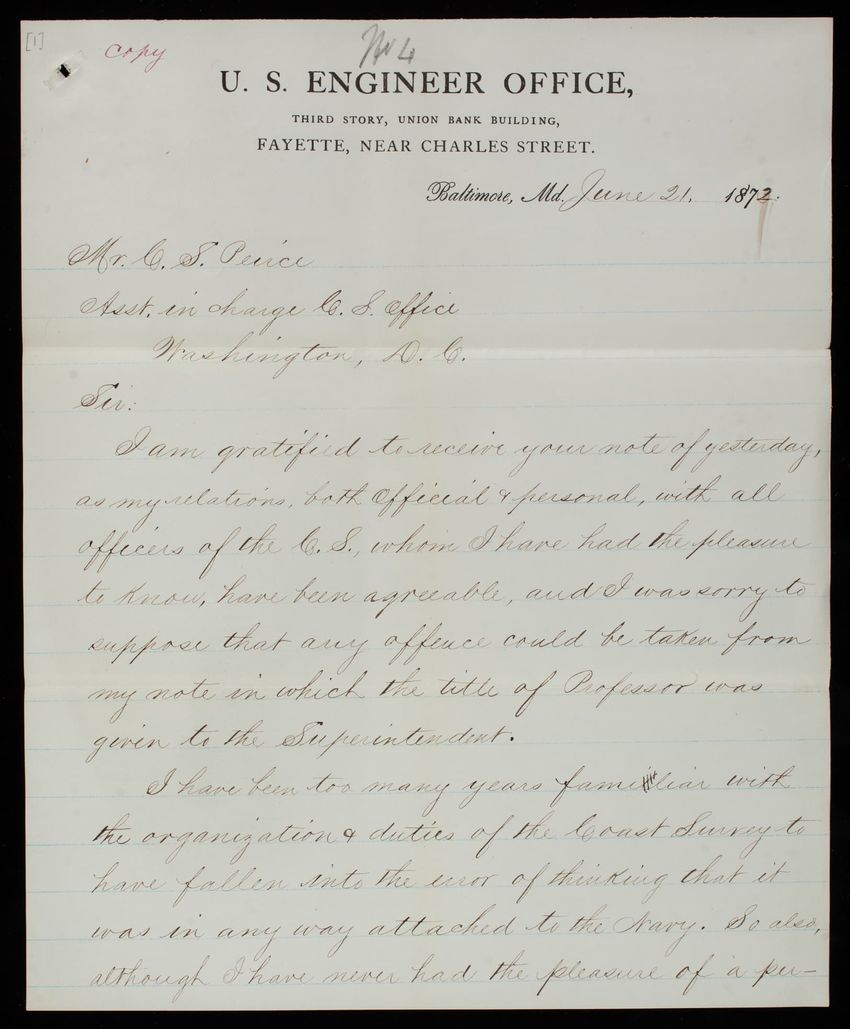 [1]
copy
No 4
U. S. ENGINEER OFFICE,
THIRD STORY, UNION BANK BUILDING,
FAYETTE, NEAR CHARLES STREET.
Baltimore, Md. June 21. 1872.
Mr. C. S. Peirce
Asst. in charge C. S. Office
Washington, D. C.
Sir:
I am gratified to receive your note of yesterday,
as my relations, both official & personal, with all
officers of the C. S., whom I have had the pleasure
to know, have been agreeable, and I was sorry to
suppose that any offence could be taken from
my note in which the title of Professor was
given to the Superintendent.
I have been too many years familiar with
the organization & duties of the Coast Survey to
have fallen into the error of thinking that it
was in any way attached to the Navy. So also,
although I have never had the pleasure of a per-